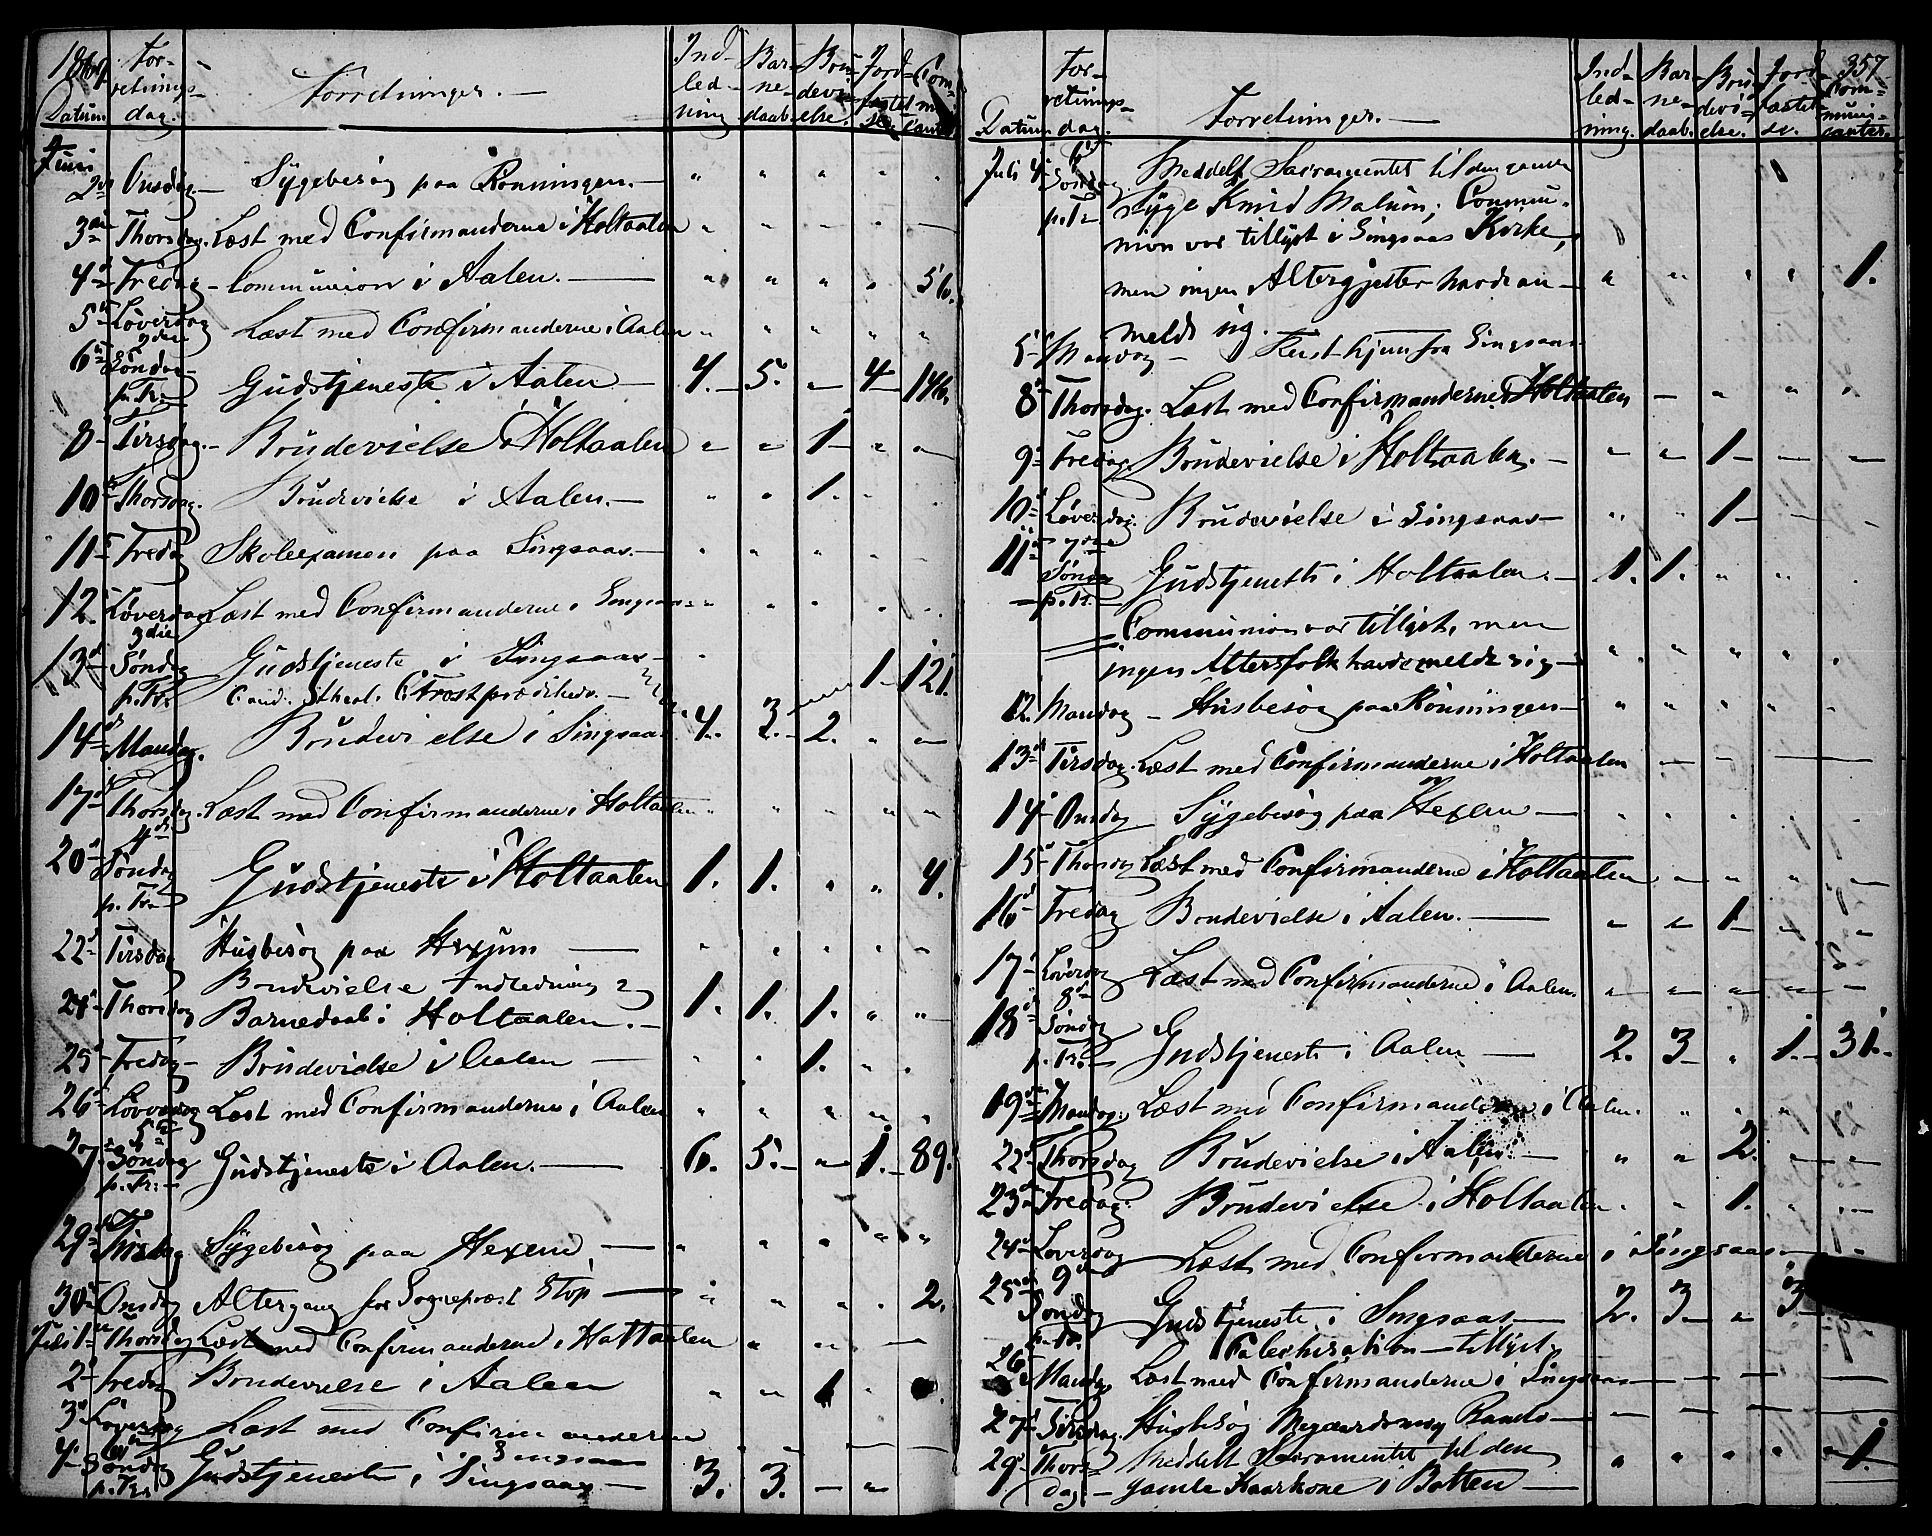 1869 For- Ind- Bar- Bru- Jord- Com-
retnings- Forretninger. led- ne- devi- fæstel- muni-
Datum dag. ning daab. else. se. canter
Juni
2den Onsdag - Sygebesøg paa Rønningen. - " " " " "
3die Thorsdag. Læst med Confirmanderne i Holtaalen " " " " -
4de Fredag - Communion i Aalen. - " " " " 56.
5te Løverdag Læst med Confirmanderne i Aalen " " " " "
2den
6te Søndag Gudstjeneste i Aalen - 4. 5. - 4 146.
p. Tr.
8 Tirsdag. - Brudevielse i Holtaalen " " 1 " "
10 Thorsdag. Brudevielse i Aalen. - " " 1. " "
11 Fredag Skoleexamen paa Singsaas. - " " " " "
12. Løverdag Læst med Confirmanderne i Singsaas " " " " "
3die
13 Søndag Gudstjeneste i Singsaas - " 1 121.
p. Tr. Cand. theol. C. Trost prædikede. -
14 Mandag. Brudevielse i Singsaas 4. 3. 2. " "
17 Thorsdag. Læst med Confirmanderne i Holtaalen " " " " "
4de
20 Søndag Gudstjeneste i Holtaalen 1. 1. " " 4.
p. Tr.
22 Tirsdag Husbesøg paa Hexum - " " " " "
Brudevielse Indledning og
24 Thorsdag Barnedaab i Holtaalen. - 1. 1. 1. " "
25 Fredag - Brudevielse i Aalen - " " 1. " .
26 Løverdag Læst med Confirmanderne i Aalen " " " " "
5te
27 Søndag Gudstjeneste i Aalen. - 6. 5. " 1. 89.
p. Tr. -
29 Tirsdag Sygebesøg paa Hexem - " " " " "
30 Onsdag Altergang for Sognepræst Stop - " " " " 2.
Juli 1 Thorsdag Læst med Confirmanderne i Holtaalen " " " -
2 Fredag Brudevielse i Aalen " " 1 "
3 Løverdag Læst med Confirmanderne
6te Singsaas - - - - -
4 Søndag Gudstjeneste i Singsaas - 3. 3. - "
p. Tr.
357
For- Ind- Bar- Bru- Jord- Com-
retnings- Forretninger. - led- ne- devi- fæstel- muni-
Datum dag. ning. daab. else. se. canter.
Juli 4 Søndag Meddelt Sacramentet til den gamle
p. Tr. Syge Knud Malum; Commu-
nion var tillyst i Singsaas Kirke,
men ingen Altergjester havde an- " " " " 1.
meldt sig.
5 Mandag - hjem fra Singsaas
8 Thorsdag. Læst med Confirmanderne i Holtaalen - " " "
9 Fredag. Brudevielse i Holtaalen. - " " 1 - -
10 Løverdag. Brudevielse i Singsaas - " " 1 - -
7de
11 Søndag Gudstjeneste i Holtaalen. - 1. 1. " " .
p. Tr.
Communion var tillyst, men
ingen Altersfolk havde meldt sig - " " " " "
12. Mandag - Husbesøg paa Rønningen - " " " " -
13 Tirsdag. Læst med Confirmanderne i Holtaalen - - - -
14 Onsdag Sygebesøg paa Hexem - " " " " "
15 Thorsdag Læst med Confirmanderne i Holtaalen - " " "
16 Fredag Brudevielse i Aalen. - " " 1 " "
17 Løverdag Læst med Confirmanderne i Aalen. " " " " "
8de
18 Søndag Gudstjeneste i Aalen - 2. 3 " 1. 31.
p. Tr.
19 Mandag. Læst med Confirmanderne i Aalen. " " " "
22 Thorsdag Brudevielse i Aalen - " " 2. - -
23 Fredag. Brudevielse i Holtaalen " " 1. " -
24 Løverdag Læst med Confirmanderne i Singsaas -
9de
25 Søndag Gudstjeneste i Singsaas - 2. 3 " 3
p. Tr. Catechisation tillyst.
26 Mandag Læst med Confirmanderne i Singsaas - - - -
27 Tirsdag. Husbesøg - - - - -
29 Thors- Meddelt Sacramentet til den " " " " 1.
dag. - gamle Kaarkone i Botten -